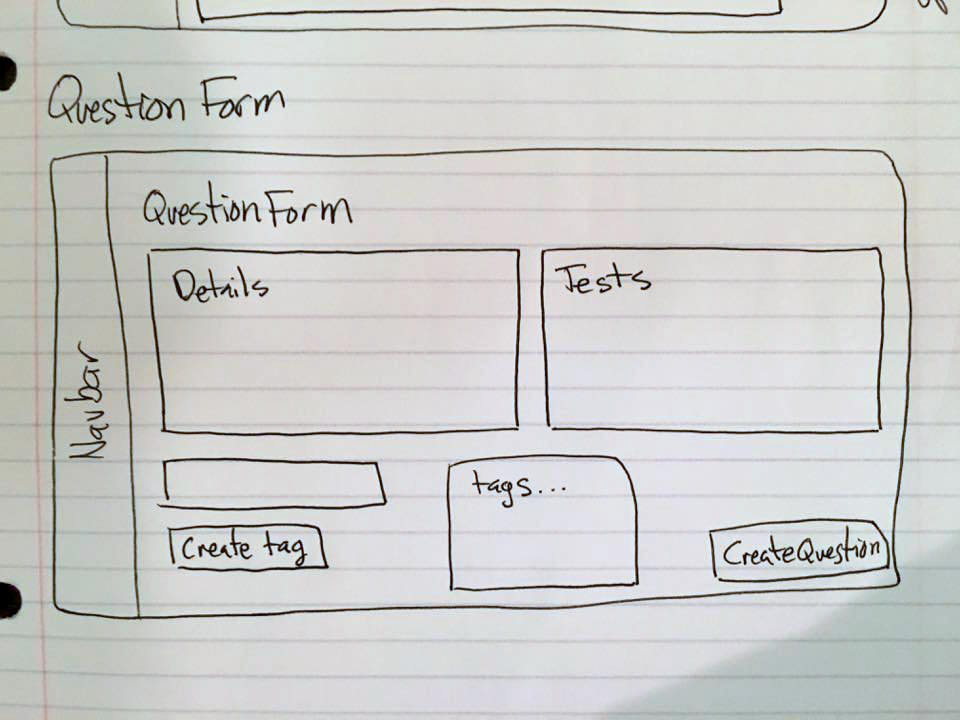 Question Form
Question Form
Navbar
Details
Tests
tags...
Create tag
Create Question